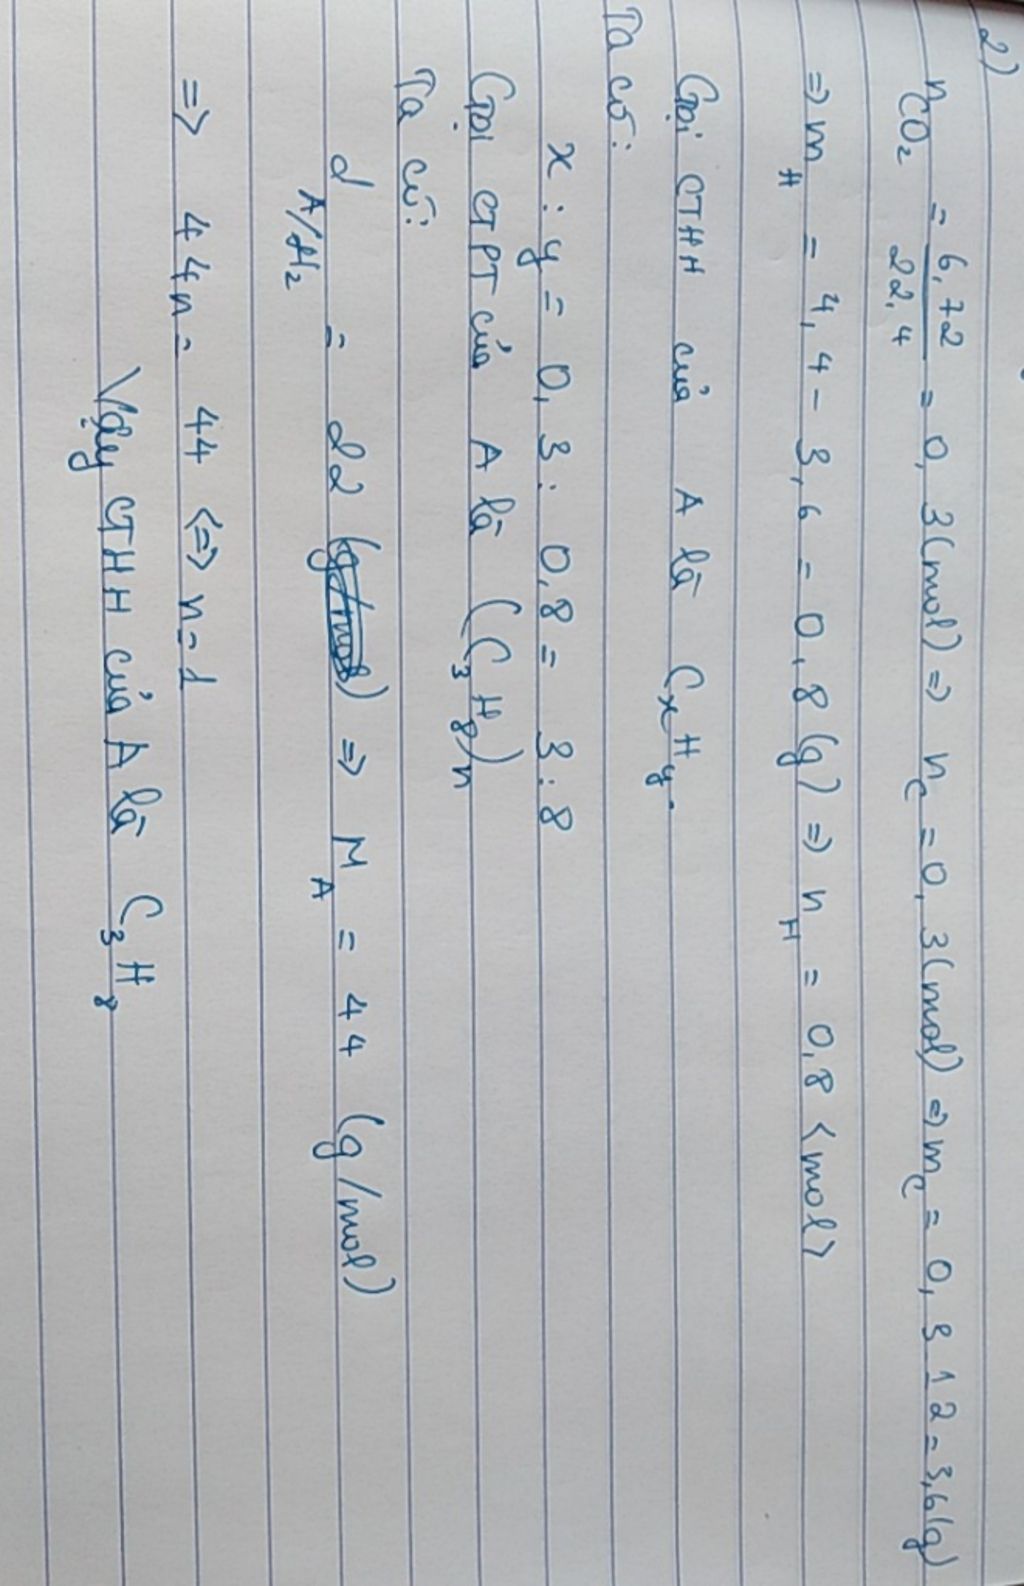 2)
n_CO₂ = 6,72/22,4 = 0,3(mol) => n_C = 0,3(mol) => m_C = 0,3 12 = 3,6(g)
=> m_H = 4,4 - 3,6 = 0,8(g) => n_H = 0,8 <mol>
Gọi CTHH của A là CxHy.
Ta có:
x : y = 0,3 : 0,8 = 3:8
Gọi CTPT của A là (C₃H₈)n
Ta có:
d A/H₂ = 22 => M_A = 44 (g/mol)
=> 44n = 44 <=> n=1
Vậy CTHH của A là C₃H₈